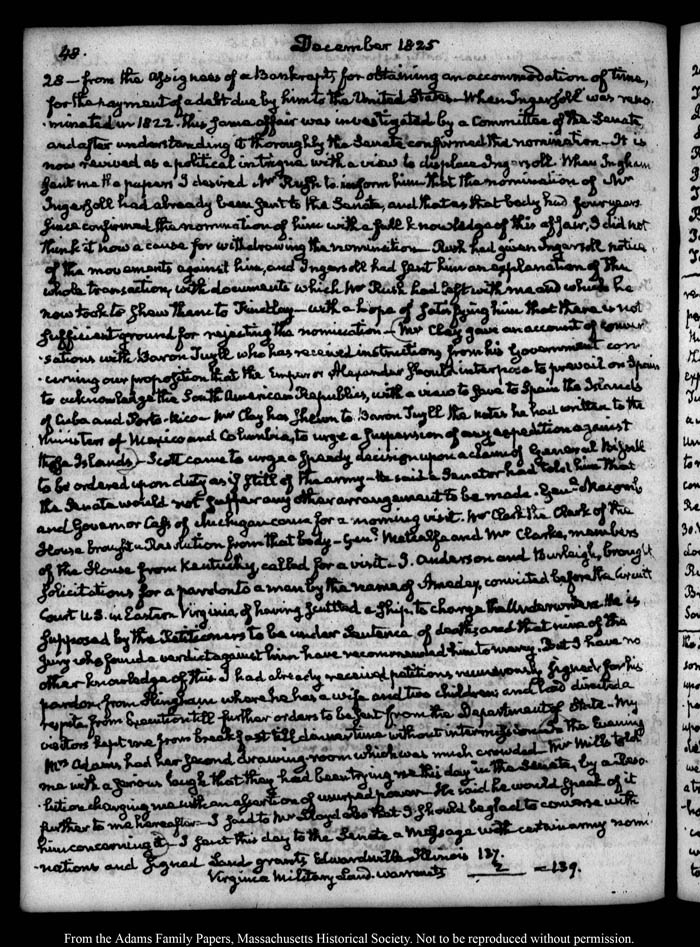 48.
December 1825
28 — from the Assignees of a Bankrupts, for obtaining an accommodation of time,
for the payment of a debt due by him to the United States — When Ingersoll was reno-
-minated in 1822. this same affair was investigated by a Committee of the Senate
and after understanding it thoroughly the Senate confirmed the nomination — It is
now revived as a political intrigue with a view to displace Ingersoll. When Ingham
sent me the papers I desired Mr Rush to inform him that the nomination of Mr
Ingersoll had already been sent to the Senate, and that as that body had four years
since confirmed the nomination of him with a full knowledge of this affair, I did not
think it now a cause for withdrawing the nomination — Rush had given Ingersoll notice
of the movements against him, and Ingersoll had sent him an explanation of the
whole transaction, with documents which Mr Rush had left with me and which he
now took to shew them to Findlay — with a hope of satisfying him that there is not
sufficient ground for rejecting the nomination — Mr Clay gave an account of conver-
-sations with Baron Tuyll who has received instructions from his Government con-
-cerning our proposition that the Emperor Alexander should interpose to prevail on Spain
to acknowledge the South American Republics, with a view to save to Spain the Islands
of Cuba and Porto-Rico — Mr Clay has shewn to Baron Tuyll the notes he had written to the
Ministers of Mexico and Columbia, to urge a suspension of any expedition against
those Islands) — Scott came to urge a speedy decision upon a claim of General
to be ordered upon duty as if still of the army — He said a Senator had told him that
the Senate would not suffer any other arrangement to be made. Genl. Macomb
and Governor Cass of Michigan came for a morning visit. Mr Clark the Clerk of the
House brought a Resolution from that body — Genl. Metcalfe and Mr Clarke, members
of the House from Kentucky, called for a visit — J. Anderson and Burleigh, brought
solicitations for a pardon to a man by the name of Amedey, convicted before the Circuit
Court U.S. in Eastern Virginia of having scuttled a ship, to charge the Underwriters. He is
supposed by the Petitioners to be under sentence of death, and that nine of the
Jury who found a verdict against him have recommended him to mercy. But I have no
other knowledge of this. I had already received petitions numerously signed for his
pardon from Hingham where he has a wife and two children; and had directed a
respite from Execution till further orders to be sent from the Department of State — My
visitors kept me from breakfast till dinner time without intermission. In the Evening
Mrs Adams had her second drawing-room which was much crowded — Mr Mills told
me with a serious laugh that they had been trying me this day, in the Senate, by a Reso-
-lution charging me with an assertion of usurped power — He said he would speak of it
further to me hereafter — I said to Mr Lloyd also that I should be glad to converse with
him concerning it — I sent this day to the Senate a Message with certain army nomi-
-nations and signed Land grants Edwardsville Illinois 137.
Virginia Military Land-warrants 2 = 139.
From the Adams Family Papers, Massachusetts Historical Society. Not to be reproduced without permission.